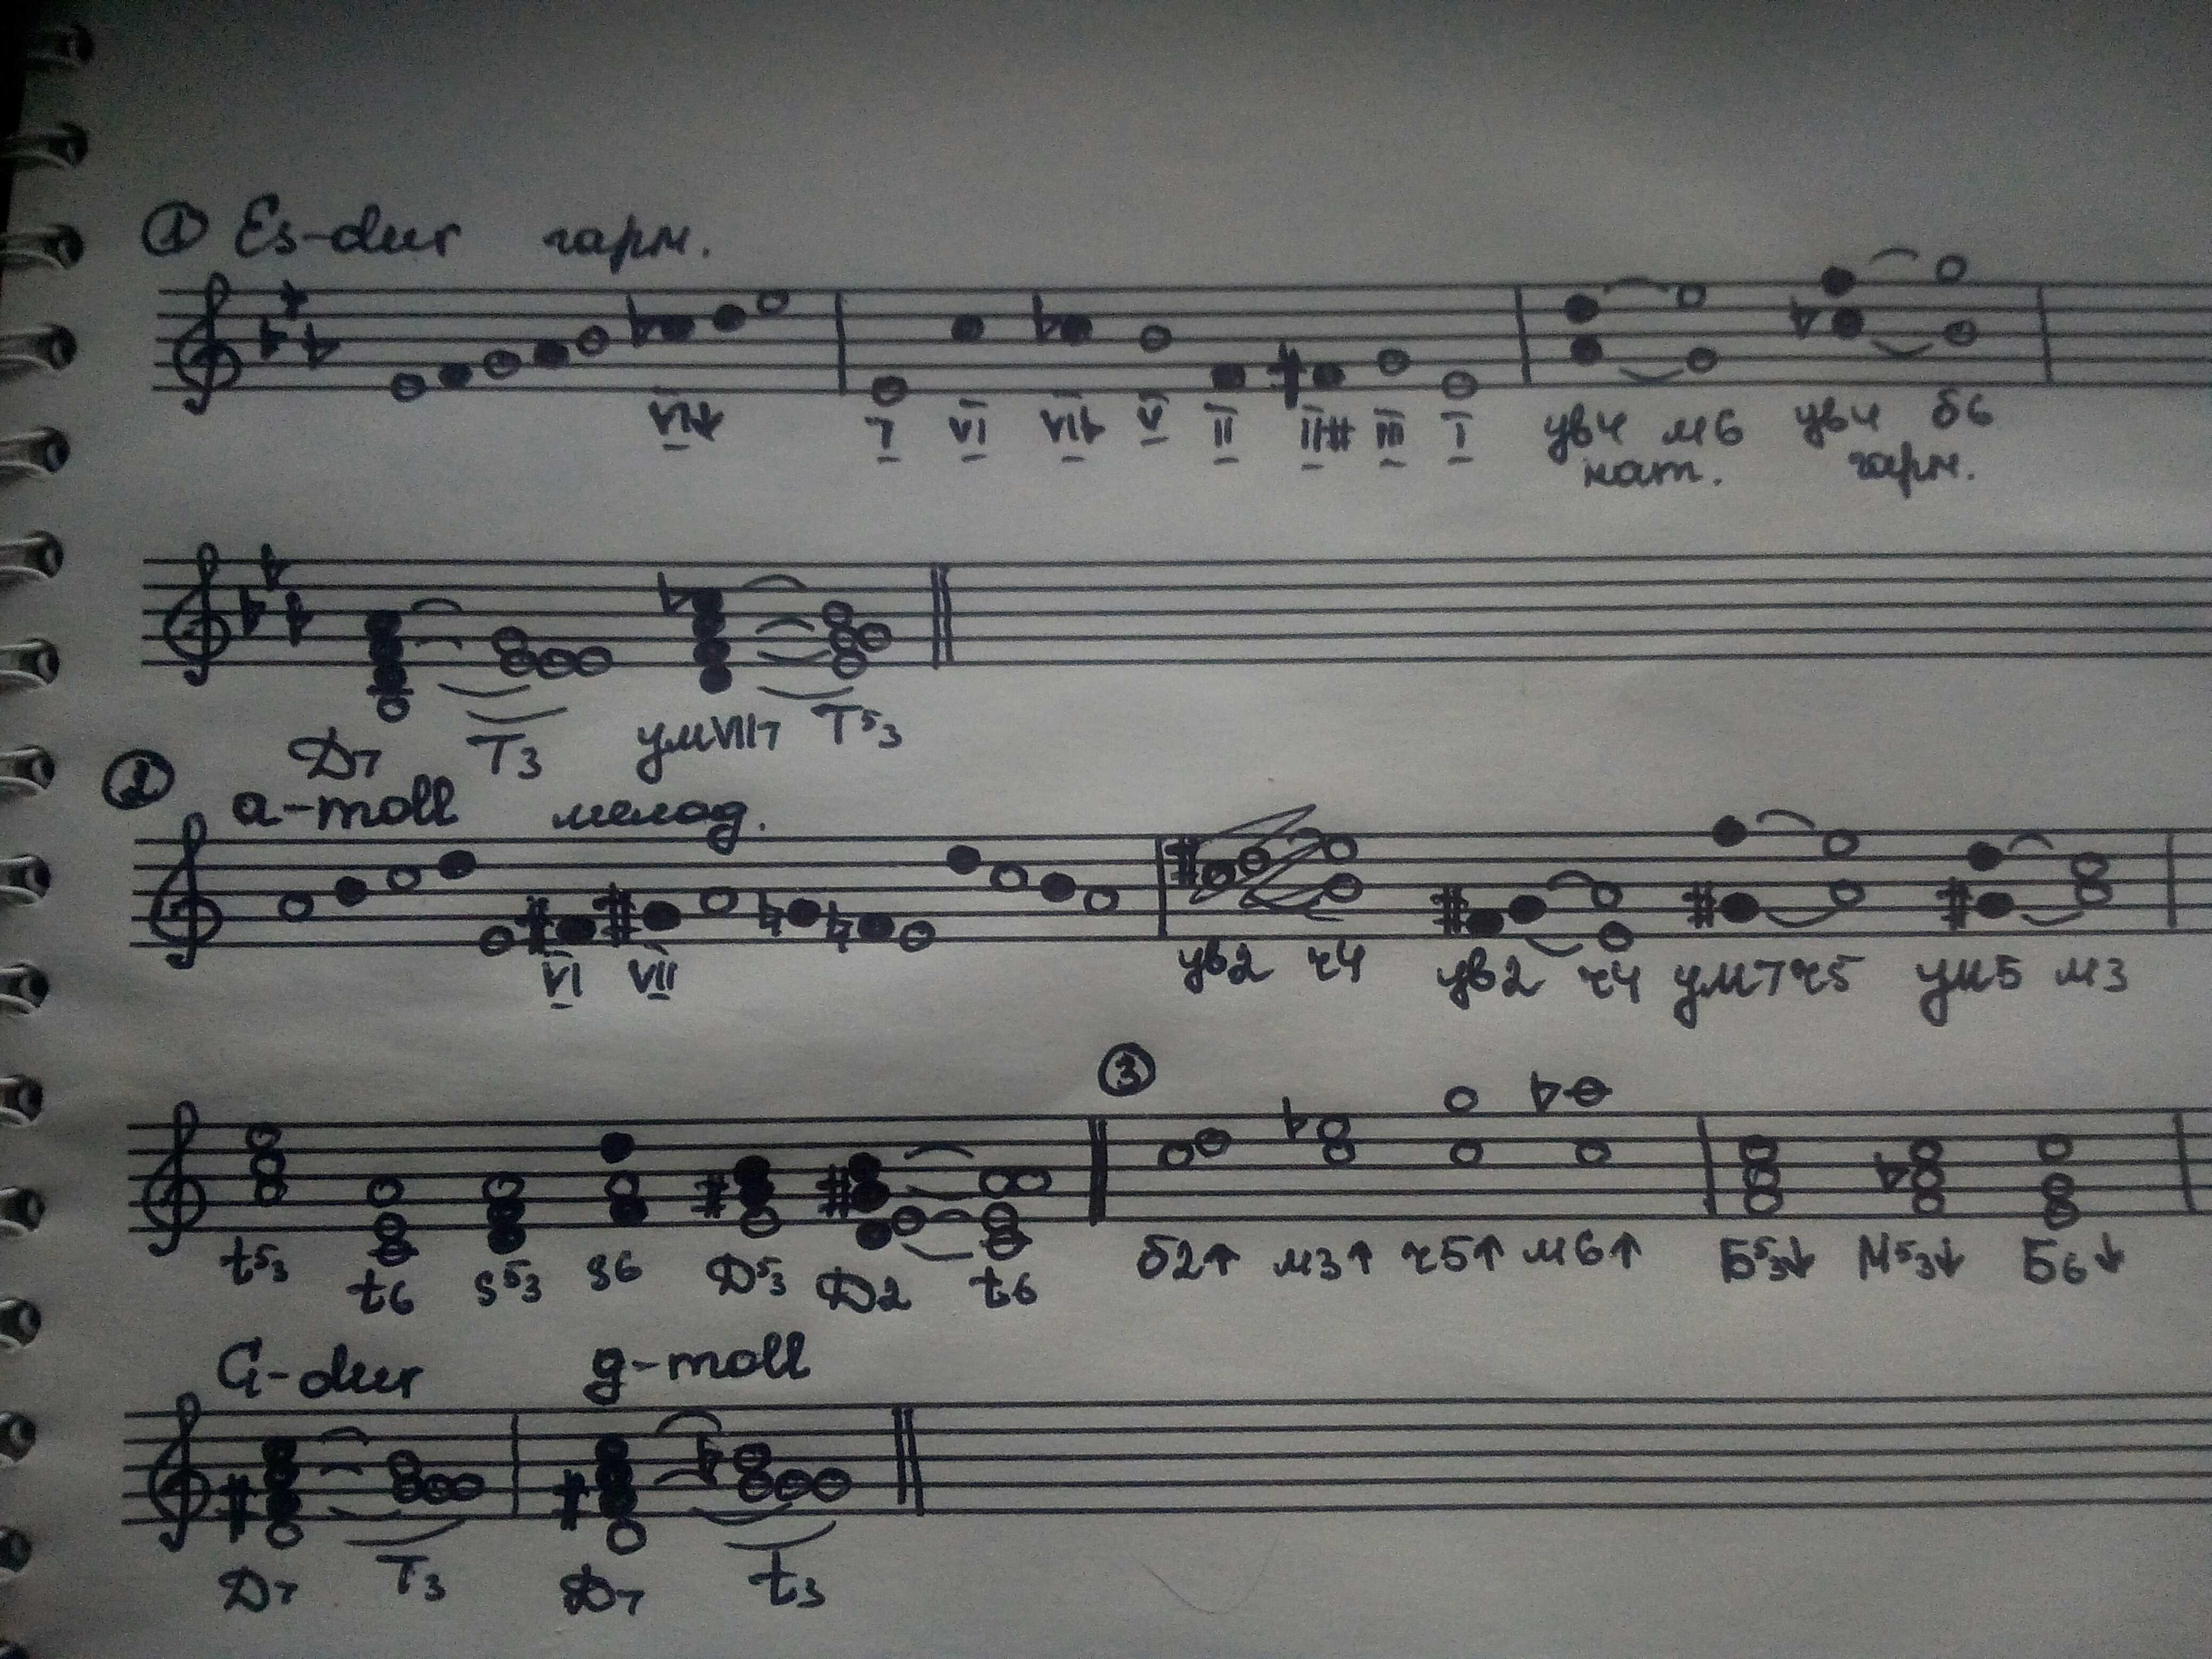 ① Es-dur гарм.
VI↓ I VI VI♭ V II II# III I ув4 м6 ув4 б6
нат. гарм.
Д7 Т3 умVII7 Т53
② a-moll мелод.
VI VII ув2 ч4 ув2 ч4 ум7 ч5 ум5 м3
③
t53 t6 s53 s6 Д53 Д2 t6 б2↑ м3↑ ч5↑ м6↑ Б53↓ М53↓ Б6↓
G-dur g-moll
Д7 Т3 Д7 t3